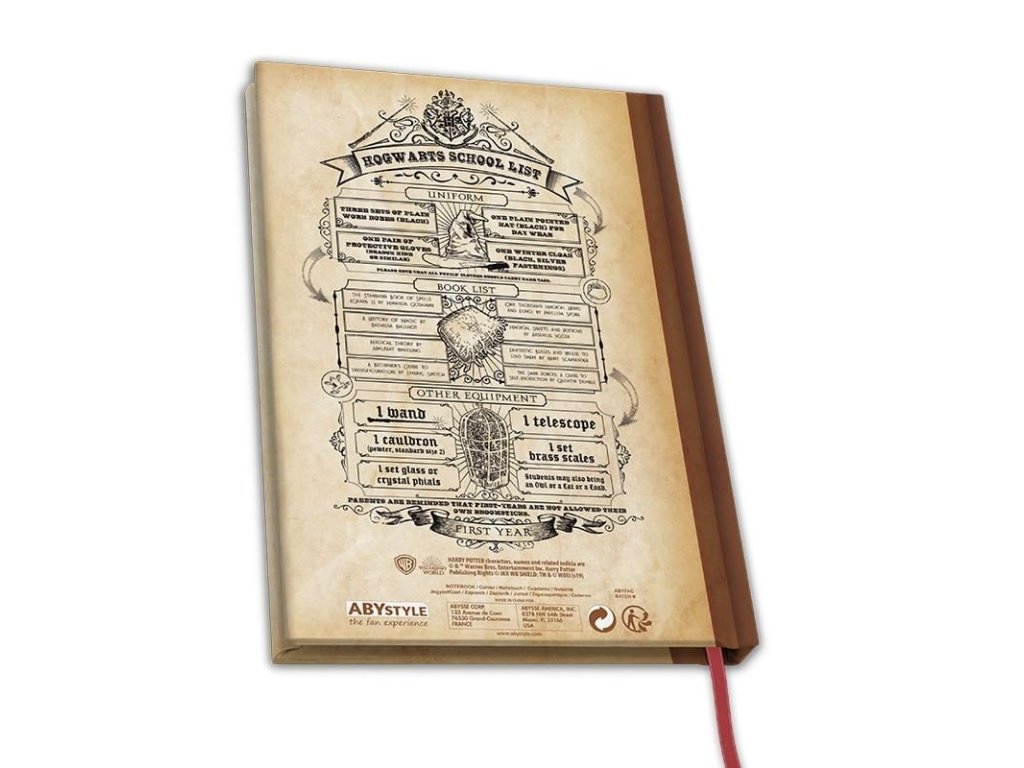 HOGWARTS SCHOOL LIST
UNIFORM
THREE SETS OF PLAIN
WORK ROBES (BLACK)
ONE PLAIN POINTED
HAT (BLACK) FOR
DAY WEAR
ONE PAIR OF
PROTECTIVE GLOVES
(DRAGON HIDE
OR SIMILAR)
ONE WINTER CLOAK
(BLACK, SILVER
FASTENINGS)
PLEASE NOTE THAT ALL PUPILS' CLOTHES SHOULD CARRY NAME TAGS.
BOOK LIST
THE STANDARD BOOK OF SPELLS
(GRADE 1) BY MIRANDA GOSHAWK
ONE THOUSAND MAGICAL HERBS
AND FUNGI BY PHYLLIDA SPORE
A HISTORY OF MAGIC BY
BATHILDA BAGSHOT
MAGICAL DRAFTS AND POTIONS
BY ARSENIUS JIGGER
MAGICAL THEORY BY
ADALBERT WAFFLING
FANTASTIC BEASTS AND WHERE TO
FIND THEM BY NEWT SCAMANDER
A BEGINNER'S GUIDE TO
TRANSFIGURATION BY EMERIC SWITCH
THE DARK FORCES: A GUIDE TO
SELF-PROTECTION BY QUENTIN TRIMBLE
OTHER EQUIPMENT
1 wand
1 telescope
1 cauldron
(pewter, standard size 2)
1 set
brass scales
1 set glass or
crystal phials
Students may also bring
an Owl or a Cat or a Toad.
PARENTS ARE REMINDED THAT FIRST-YEARS ARE NOT ALLOWED THEIR
OWN BROOMSTICKS.
FIRST YEAR
WB
WIZARDING
WORLD
HARRY POTTER characters, names and related indicia are
© & ™ Warner Bros. Entertainment Inc. Harry Potter
Publishing Rights © JKR WB SHIELD: TM & © WBEI (s19)
NOTEBOOK / Cahier / Notizbuch / Cuaderno / Notatnik
MADE IN CHINA
ABYSTYLE
the fan experience
ABYSSE CORP.
76530 Grand-Couronne
FRANCE
ABYSSE AMERICA, INC.
8378 NW 64th Street
Miami, FL 33166
USA
BATCH #
www.abystyle.com